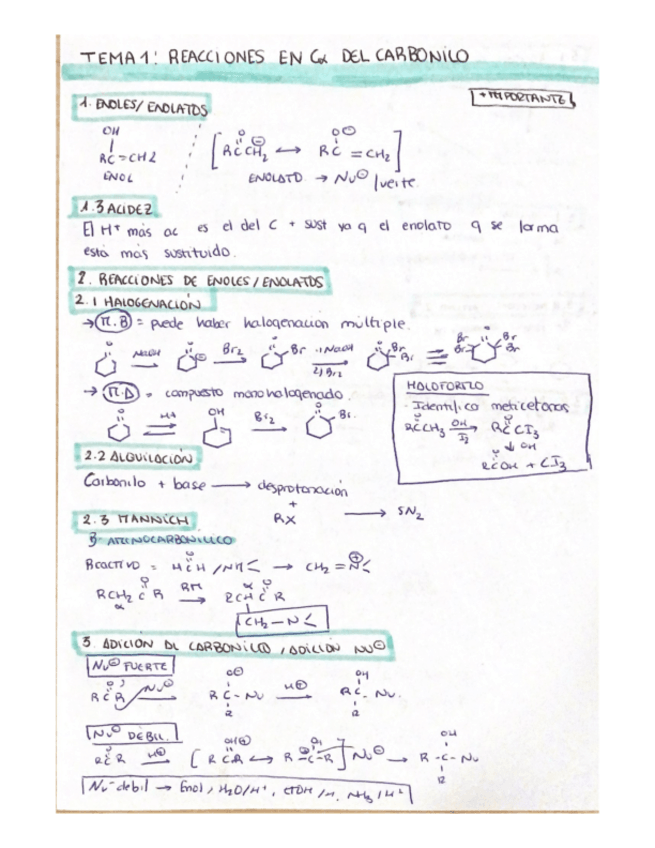 TEMA 1: REACCIONES EN Cα DEL CARBONILO
+ IMPORTANTE
1. ENOLES/ENOLATOS
OH
RC=CH2
ENOL
[RCCH2 ⟷ RC=CH2]
O O⊖
ENOLATO → Nu⊖ fuerte.
1.3 ACIDEZ
El H+ más ac es el del C + sust ya q el enolato q se forma
está más sustituido.
2. REACCIONES DE ENOLES/ENOLATOS
2.1 HALOGENACIÓN
→ M.B = puede haber halogenación múltiple.
O NaOH O ⊖ Br2 O Br 1) NaOH 2) Br2 O Br Br O Br Br Br Br
→ M.A = compuesto monohalogenado.
O HA OH Br2 O Br.
HALOFORMO
- Identifico metilcetonas
RCCH3 OH I2 → RCCI3
↓ OH
RCOH + CI3
2.2 ALQUILACIÓN
Carbonilo + base ⟶ desprotonación
+
RX ⟶ SN2
2.3 MANNICH
β-AMINOCARBONÍLICO
Reactivo = HCH /NH< → CH2=N⊕<
RCH2CR RM → RCHCR
α α
CH2-N<
3. ADICIÓN AL CARBONILO /ADICIÓN NU⊖
NU⊖ FUERTE
RCR Nu⊖ → RC-Nu H⊕ → RC-Nu.
O O⊖ OH
R R
NU⊖ DÉBIL.
RCR H⊕ → [RCR ⟷ R-C-R] Nu⊖ → R-C-Nu
O OH⊕ OH
R
Nu- debil → Enol, H2O/H+, ETOH/H, NH3/H+